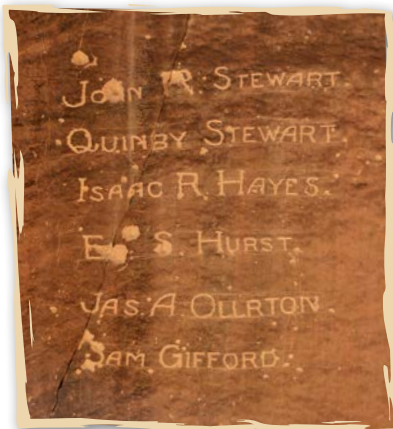 JOHN R. STEWART.
QUINBY STEWART.
ISAAC R. HAYES.
E. S. HURST.
JAS. A. OLLRTON.
SAM GIFFORD.